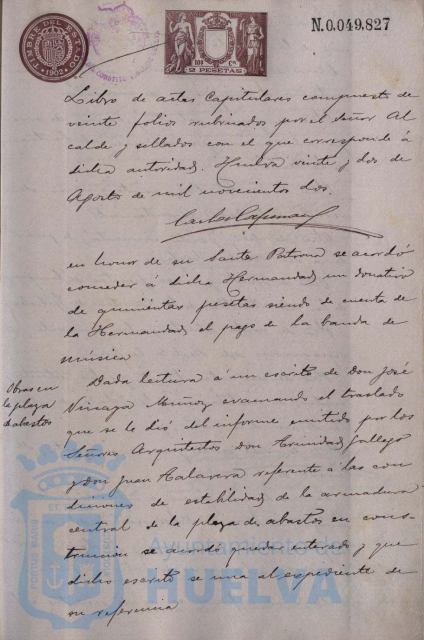 N.0.049,827
TIMBRE DEL ESTADO
1902
2 PESETAS
Libro de actas Capitulares compuesto de
veinte folios rubricados por el Señor Al
calde y sellados con el que corresponde á
dicha autoridad. Huelva veinte y dos de
Agosto de mil novecientos dos.
en honor de su Santa Patrona se acordó
conceder á dicha Hermandad un donativo
de quinientas pesetas siendo de cuenta de
la Hermandad el pago de la banda de
música
Obras en
la plaza
de abastos
Dada lectura á un escrito de Don José
Muñoz evacuando el traslado
que se le dió del informe emitido por los
Señores Arquitectos Don Trinidad Gallego
y Don Juan Talavera referente á las con
diciones de estabilidad de la armadura
central de la plaza de abastos en cons-
trucción se acordó quedar enterado y que
dicho escrito se una al expediente de
su referencia
Ayuntamiento de
HUELVA